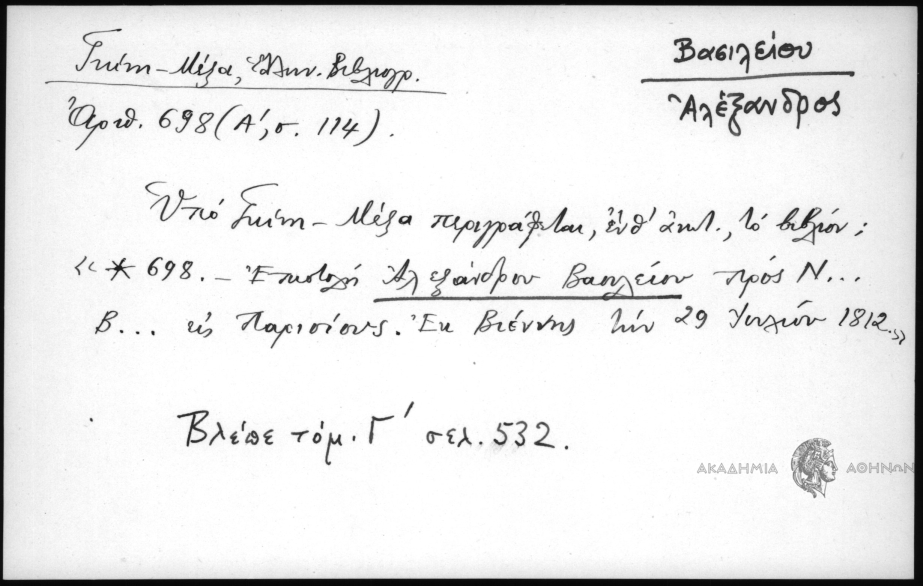 Γκίνη - Μέξα, Ἑλλην. Βιβλιογρ.
Βασιλείου
Ἀλέξανδρος
Ἀριθ. 698 (Α', σ. 114).
Ὑπό Γκίνη - Μέξα περιγράφεται, ἐνθ' ἀνωτ., τό βιβλίον;
«* 698. - Ἐπιστολή Ἀλεξάνδρου Βασιλείου πρός Ν...
Β... εἰς Παρισίους. Ἐκ Βιέννης τήν 29 Ἰουλίου 1812.»
Βλέπε τόμ. Γ' σελ. 532.
ΑΚΑΔΗΜΙΑ ΑΘΗΝΩΝ